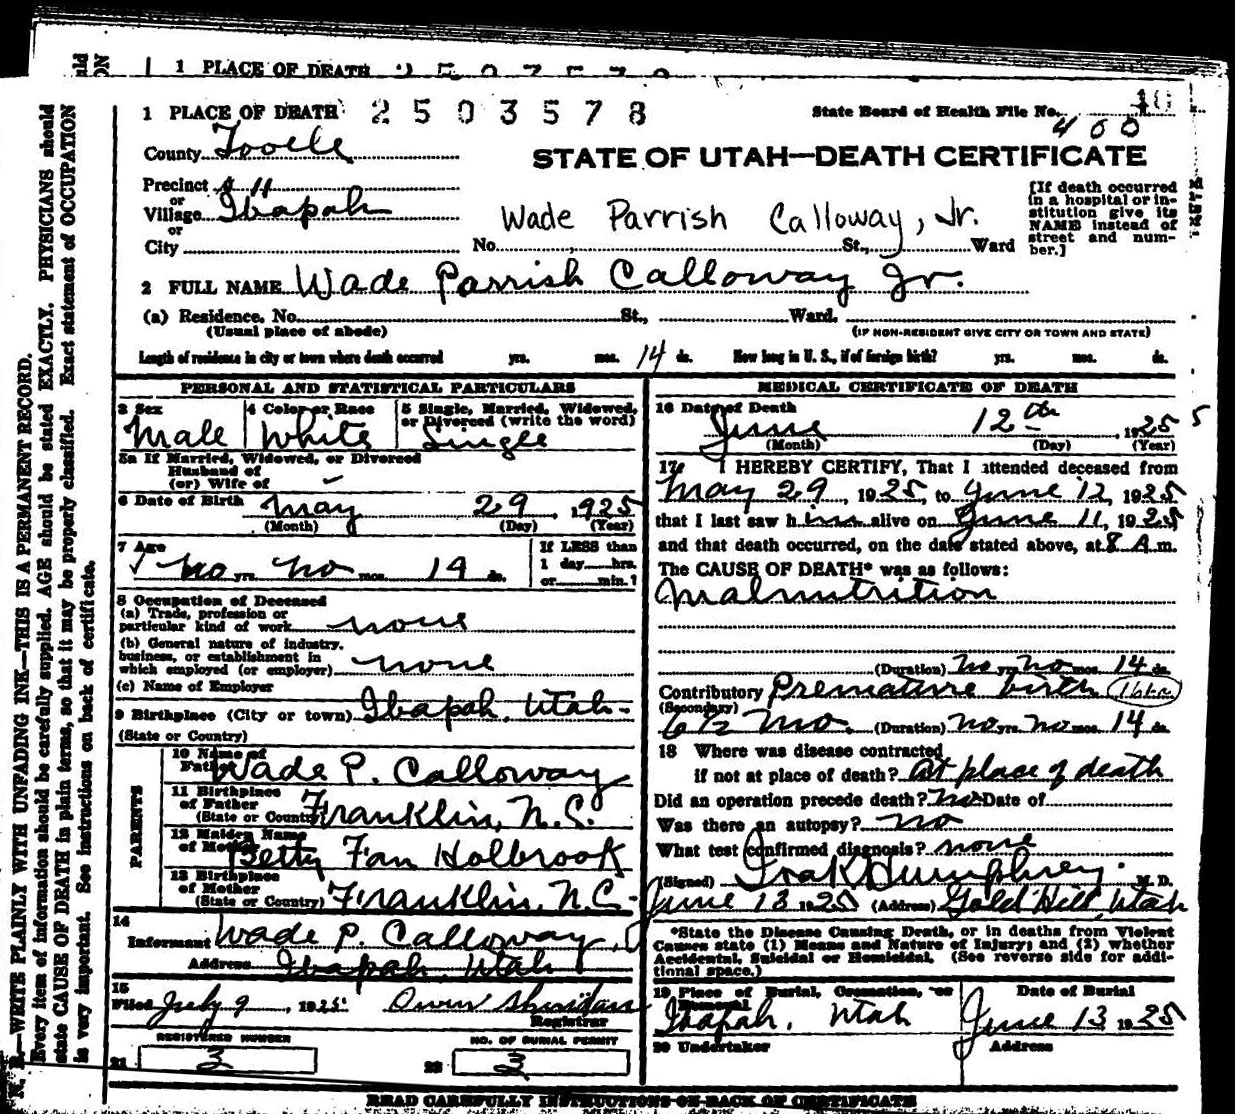 1 PLACE OF DEATH
1 PLACE OF DEATH 2503578
State Board of Health File No. 400
County Tooele
STATE OF UTAH—DEATH CERTIFICATE
Precinct # 11
or
Village Ibapah
or
City
Wade Parrish Calloway, Jr.
No. St., Ward
[If death occurred in a hospital or institution give its NAME instead of street and number.]
2 FULL NAME Wade Parrish Calloway Jr.
(a) Residence. No. St., Ward.
(Usual place of abode) (IF NON-RESIDENT GIVE CITY OR TOWN AND STATE)
Length of residence in city or town where death occurred yrs. mos. 14 ds. How long in U. S., if of foreign birth? yrs. mos. ds.
PERSONAL AND STATISTICAL PARTICULARS
3 Sex
Male
4 Color or Race
White
5 Single, Married, Widowed,
or Divorced (write the word)
Single
5a If Married, Widowed, or Divorced
Husband of
(or) Wife of
6 Date of Birth May 29, 1925
(Month) (Day) (Year)
7 Age
no yrs. no mos. 14 ds.
If LESS than
1 day hrs.
or min.?
8 Occupation of Deceased
(a) Trade, profession or
particular kind of work none
(b) General nature of industry,
business, or establishment in
which employed (or employer) none
(c) Name of Employer
9 Birthplace (City or town) Ibapah, Utah-
(State or Country)
PARENTS
10 Name of
Father Wade P. Calloway
11 Birthplace
of Father
(State or Country) Franklin, N.C.
12 Maiden Name
of Mother Betty Fan Holbrook
13 Birthplace
of Mother
(State or Country) Franklin, N.C.-
14
Informant Wade P. Calloway
Address Ibapah, Utah
15
Filed July 9, 1925 Owen Sheridan
Registrar
REGISTERED NUMBER
21 3
NO. OF BURIAL PERMIT
22 2
MEDICAL CERTIFICATE OF DEATH
16 Date of Death
June 12th, 1925
(Month) (Day) (Year)
17 I HEREBY CERTIFY, That I attended deceased from
May 29, 1925, to June 12, 1925
that I last saw him alive on June 11, 1925
and that death occurred, on the date stated above, at 8 A m.
The CAUSE OF DEATH* was as follows:
Malnutrition
(Duration) no yrs. no mos. 14 ds.
Contributory Premature birth
(Secondary)
6 1/2 mo. (Duration) no yrs. no mos. 14 ds.
18 Where was disease contracted
if not at place of death? At place of death
Did an operation precede death? no Date of
Was there an autopsy? no
What test confirmed diagnosis? none
(Signed) Ira K Humphrey M. D.
June 13 1925 (Address) Gold Hill, Utah
*State the Disease Causing Death, or in deaths from Violent
Causes state (1) Means and Nature of Injury; and (2) whether
Accidental, Suicidal or Homicidal. (See reverse side for additional space.)
19 Place of Burial, Cremation, or
Removal
Ibapah, Utah
Date of Burial
June 13 1925
20 Undertaker
Address
READ CAREFULLY INSTRUCTIONS ON BACK OF CERTIFICATE
N. B.—WRITE PLAINLY WITH UNFADING INK—THIS IS A PERMANENT RECORD.
Every item of information should be carefully supplied. AGE should be stated EXACTLY. PHYSICIANS should
state CAUSE OF DEATH in plain terms, so that it may be properly classified. Exact statement of OCCUPATION
is very important. See instructions on back of certificate.